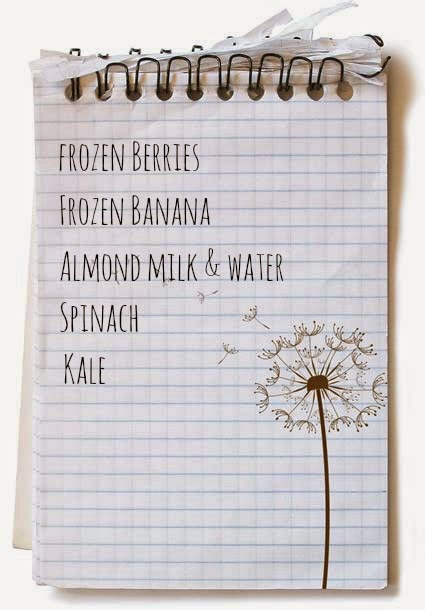 frozen Berries
Frozen Banana
Almond milk & water
Spinach
Kale